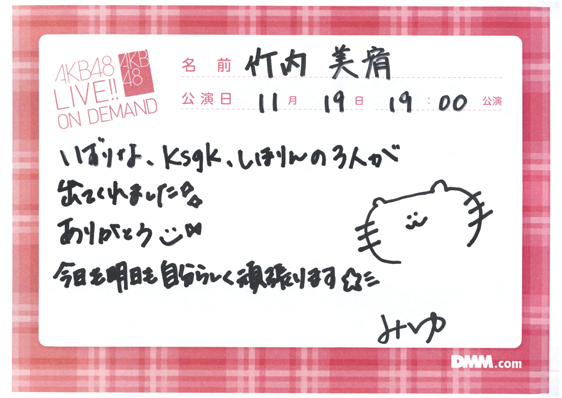 AKB48
LIVE!!
ON DEMAND
AKB
48
名前 竹内 美宥
公演日 11月 19日 19:00 公演
いずりな、Ksgk、しほりんの3人が
出てくれました
ありがとう
今日も明日も自分らしく頑張ります
みゆ
DMM.com